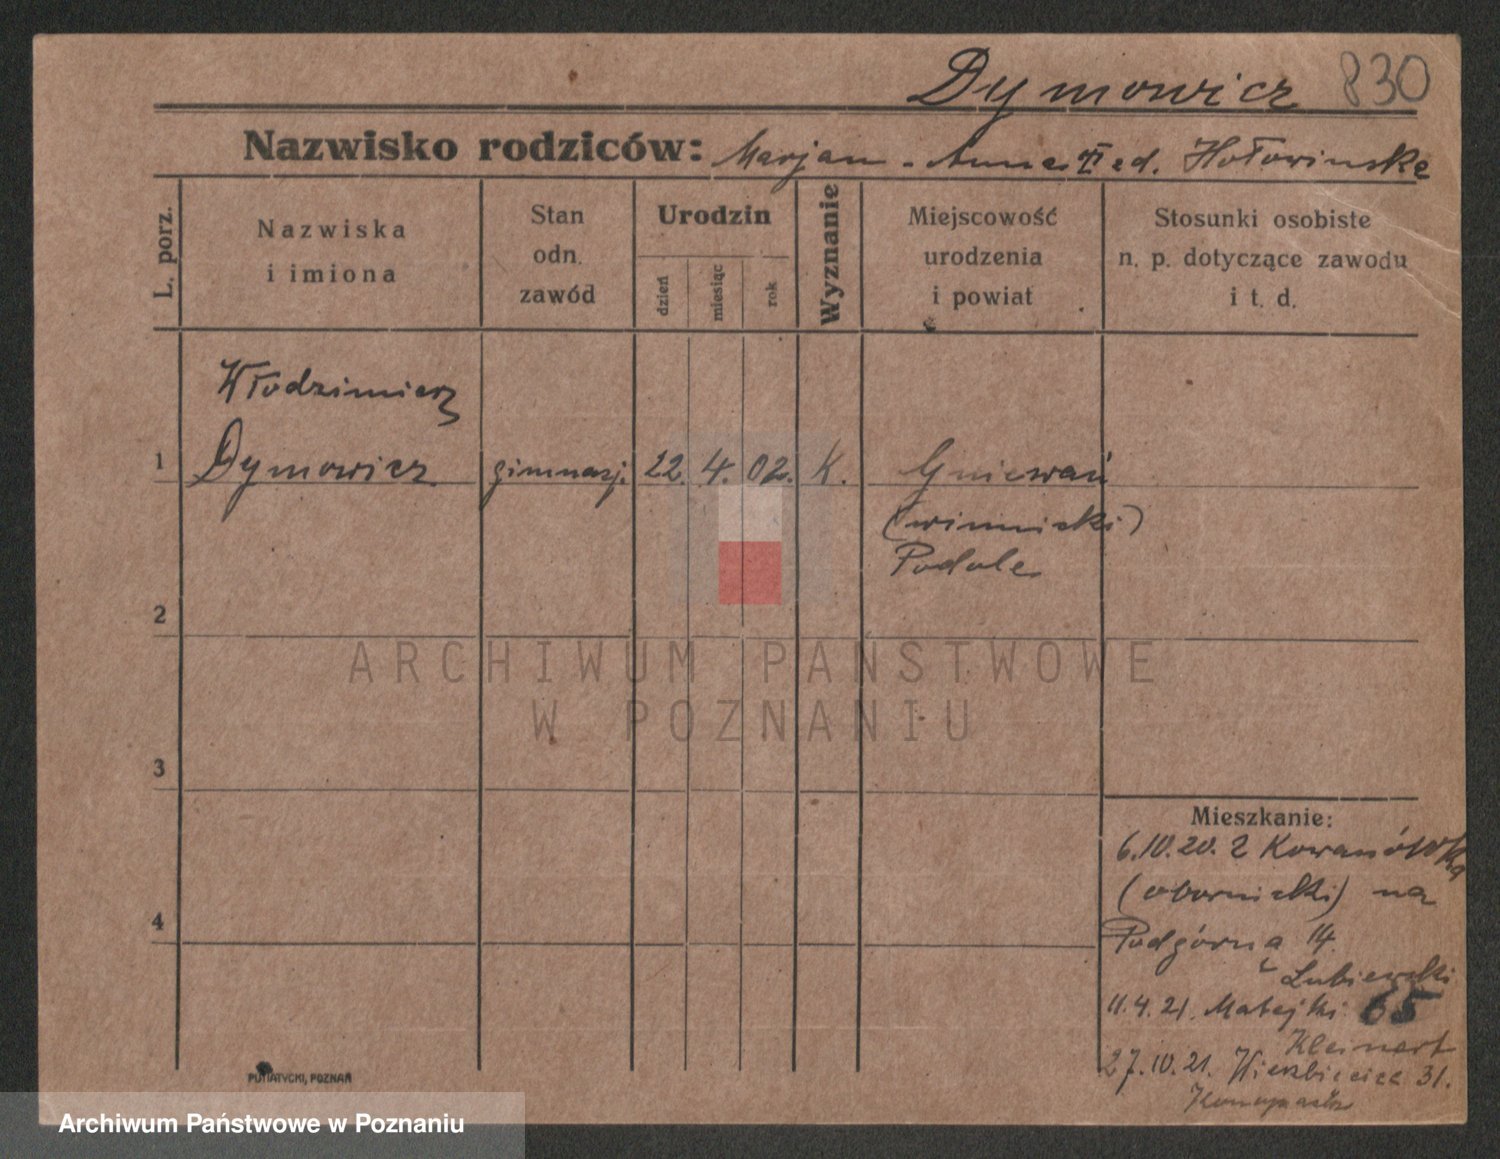 Dymowicz 830
Nazwisko rodziców: Marjan - Anna ed. Hołowinska
L. porz.
Nazwiska
i imiona
Stan
odn.
zawód
Urodzin
dzień
miesiąc
rok
Wyznanie
Miejscowość
urodzenia
i powiat
Stosunki osobiste
n. p. dotyczące zawodu
i t. d.
Włodzimierz
1 Dymowicz gimnazj. 22. 4. 02. K. Gniewań
(winnicki)
Podole
2
ARCHIWUM PAŃSTWOWE
W POZNANIU
3
Mieszkanie:
6.10.20. z Kowanówka
(obornicki) na
4
Podgórna 14.
Lubiewski
11.4.21. Matejki 65
Kleinert
27.10.21. Wierzbięcice 31.
PUTIATYCKI, POZNAŃ
Archiwum Państwowe w Poznaniu